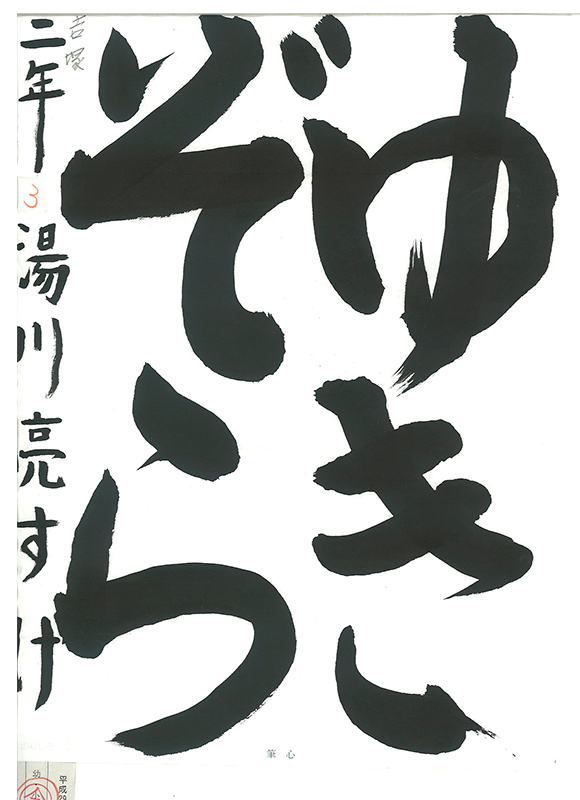 ゆき
ぞら
吉塚
二年 湯川亮すけ
3
筆心
幼小
平成29